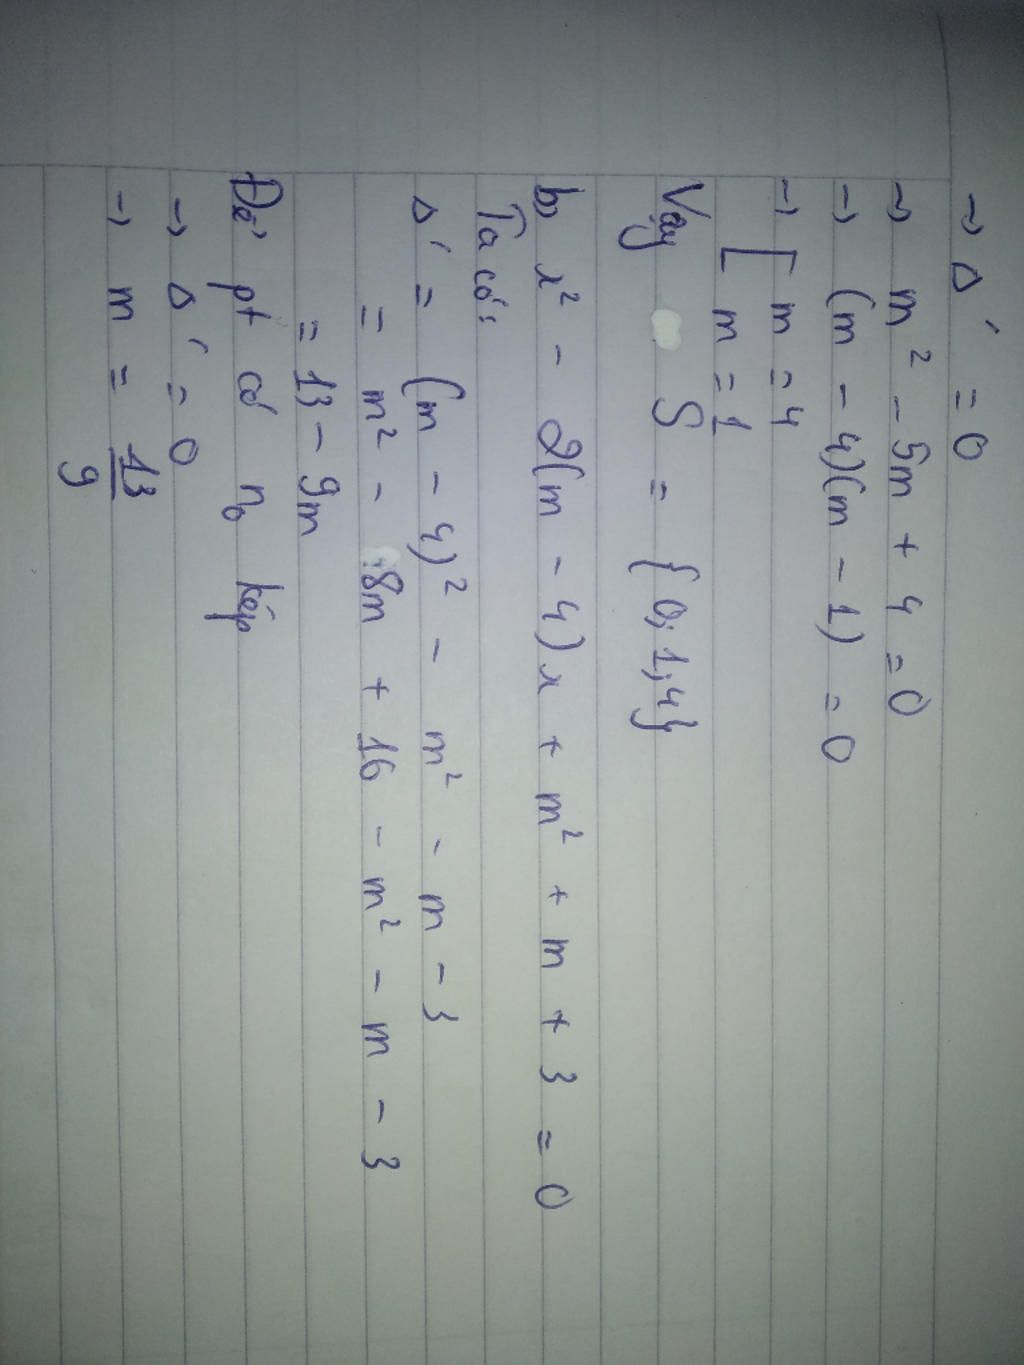 → Δ' = 0
→ m² - 5m + 4 = 0
→ (m - 4)(m - 1) = 0
→ [ m = 4
m = 1
Vậy S = {0; 1; 4}
b) x² - 2(m - 4)x + m² + m + 3 = 0
Ta có:
Δ' = (m - 4)² - m² - m - 3
= m² - 8m + 16 - m² - m - 3
= 13 - 9m
Để pt có no kép
→ Δ' = 0
→ m = 13/9